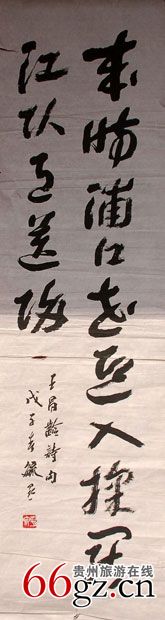 来時浦口花迎入採罷
江头月送归
王昌龄詩句
戊子春毓
贵州旅游在线
66gz.com.cn